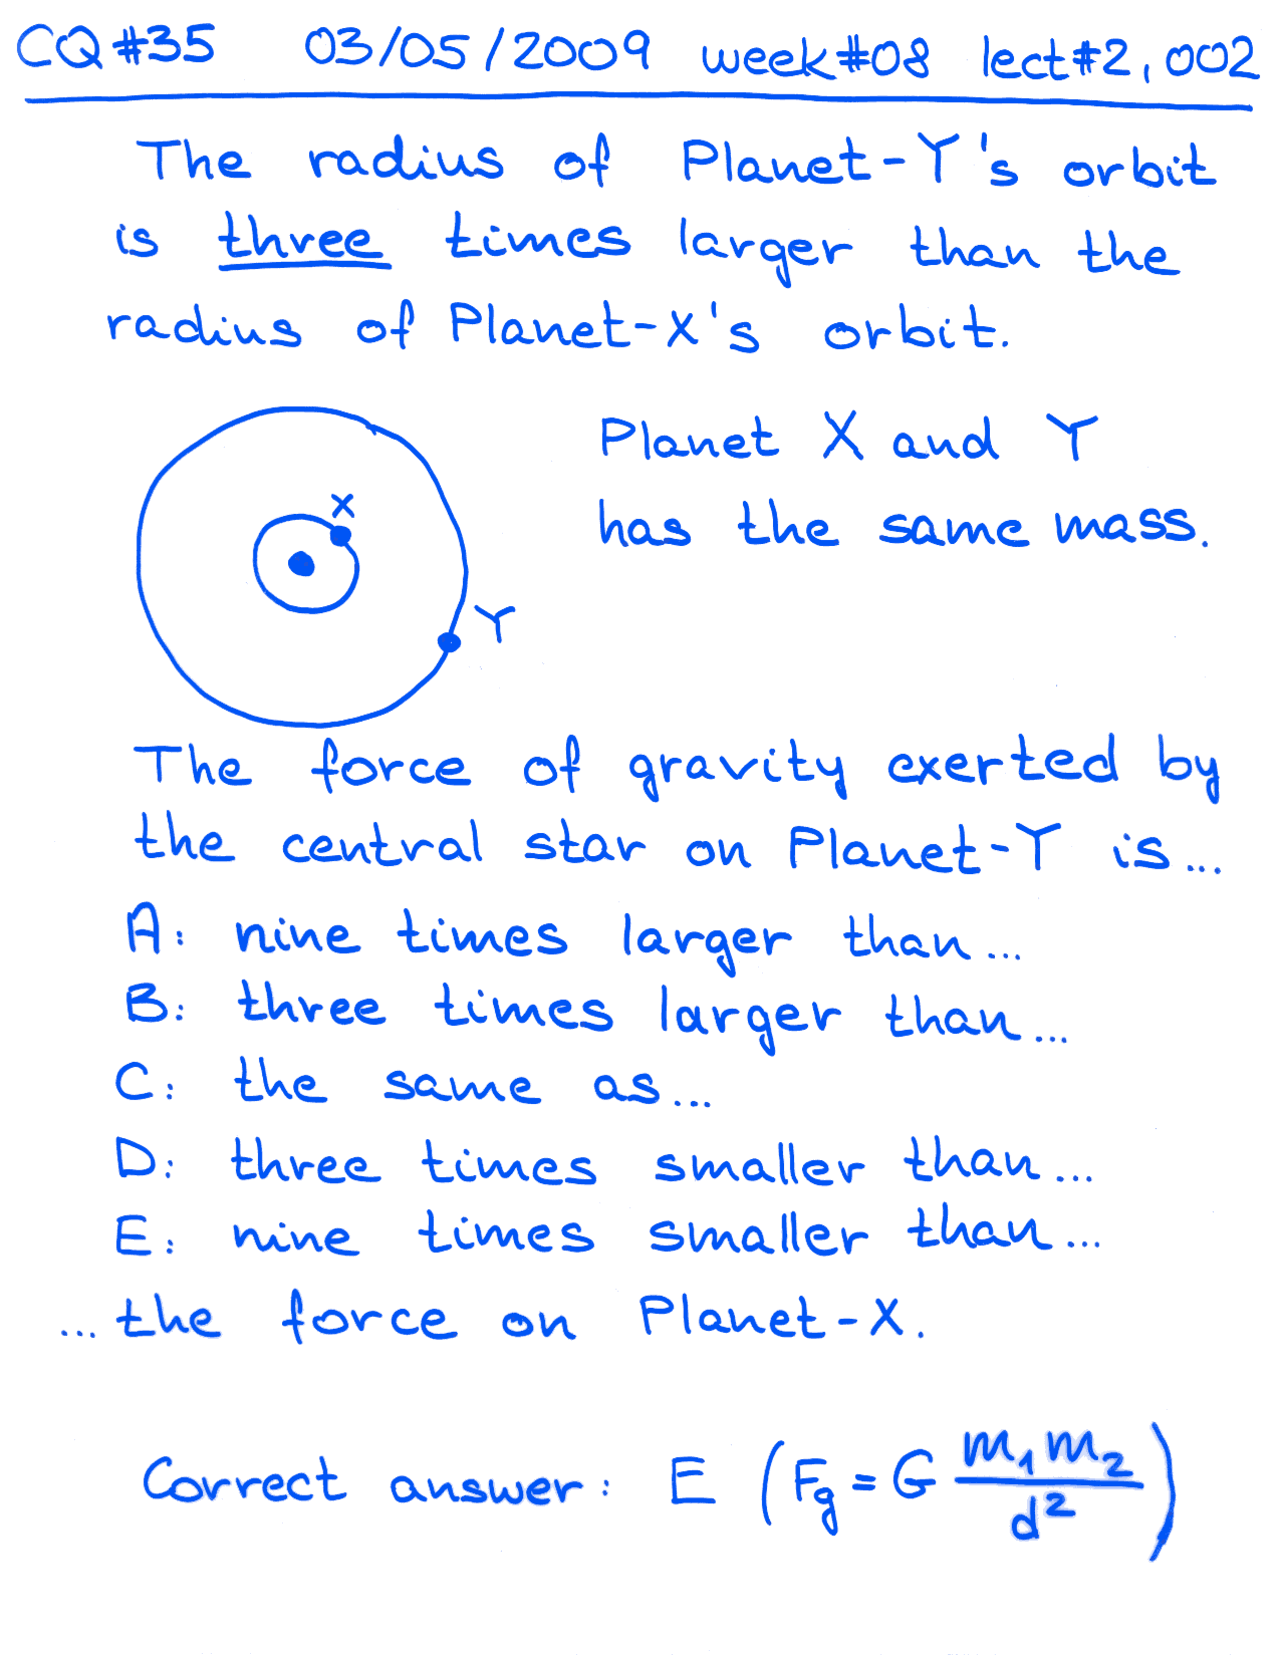 CQ #35 03/05/2009 week #08 lect #2, 002
The radius of Planet-Y's orbit
is three times larger than the
radius of Planet-X's orbit.
Planet X and Y
has the same mass.
X
Y
The force of gravity exerted by
the central star on Planet-Y is...
A: nine times larger than...
B: three times larger than...
C: the same as...
D: three times smaller than...
E: nine times smaller than...
... the force on Planet-X.
Correct answer: E (Fg = G m1 m2 / d²)